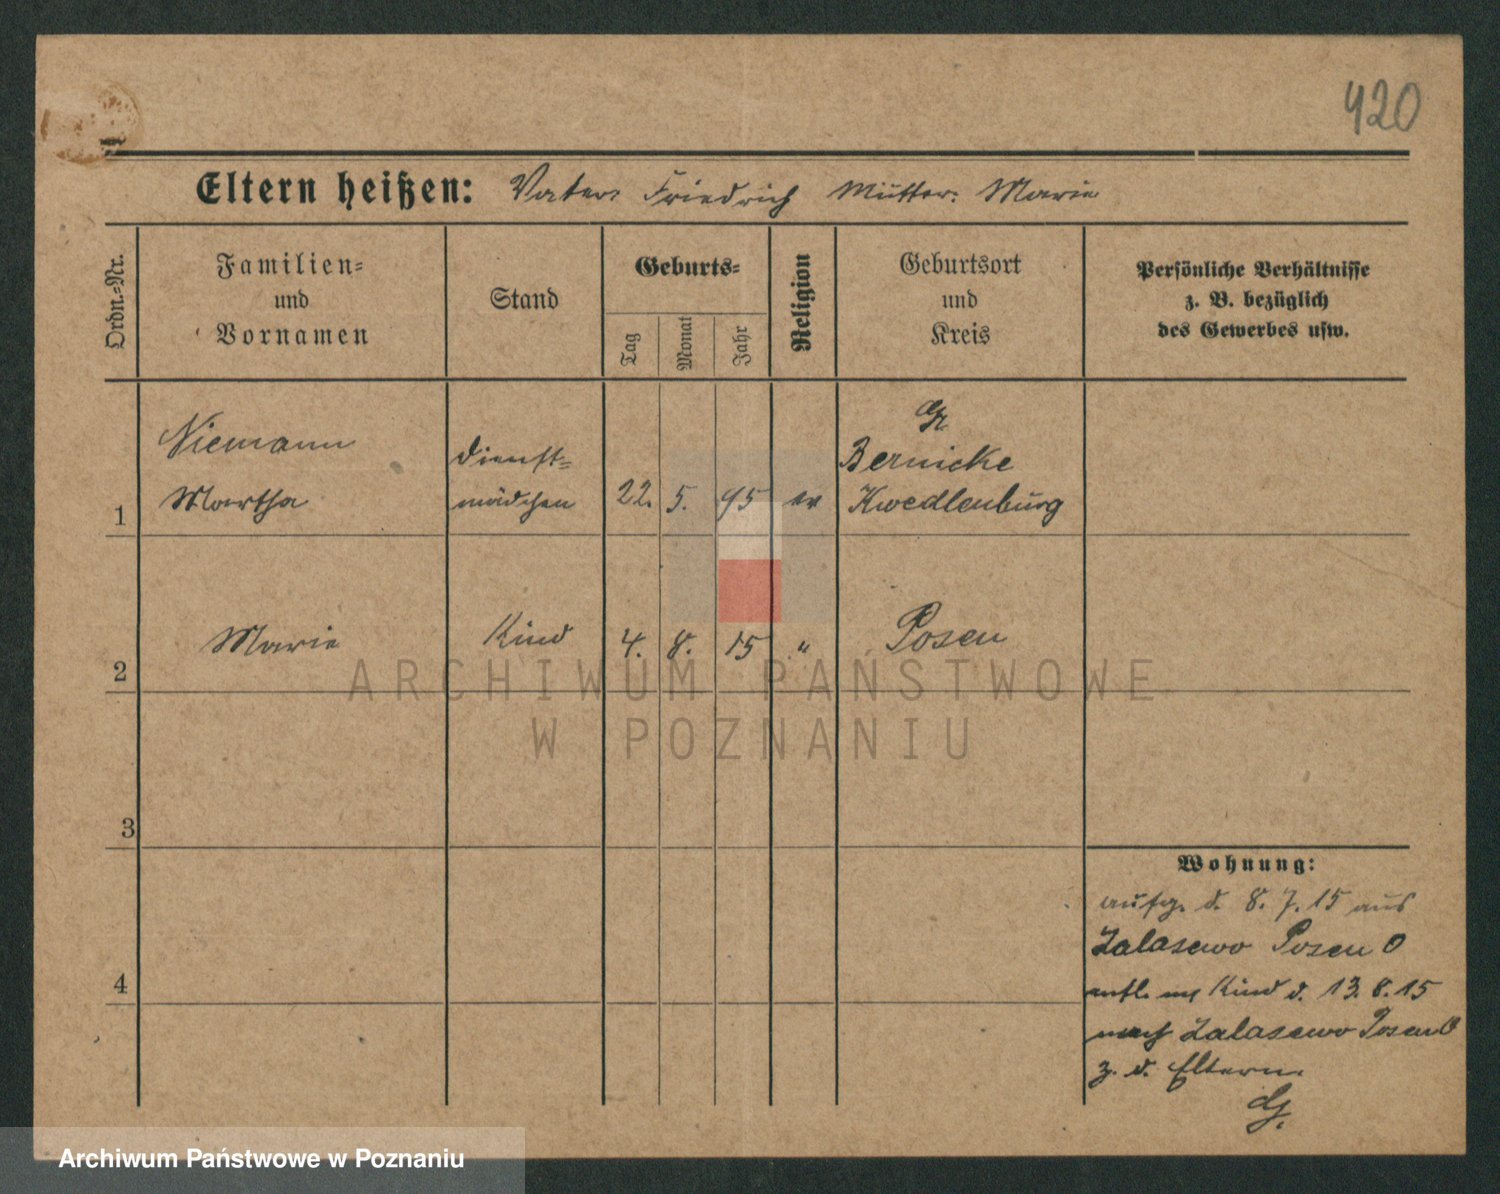 420
Eltern heißen: Vater: Friedrich Mutter: Marie
Ordn.-Nr.
Familien-
und
Vornamen
Stand
Geburts-
Tag
Monat
Jahr
Religion
Geburtsort
und
Kreis
Persönliche Verhältnisse
z. B. bezüglich
des Gewerbes usw.
1
Niemann
Martha
Dienst-
mädchen
22. 5. 95
ev
Gr.
Bernicke
Kwedlenburg
2
Marie
Kind
4. 8. 15
"
Posen
3
4
Wohnung:
aufg. d. 8. 7. 15 aus
Zalasewo Posen O
entl. mit Kind d. 13. 8. 15
nach Zalasewo Posen O
z. d. Eltern.
ARCHIWUM PAŃSTWOWE
W POZNANIU
Archiwum Państwowe w Poznaniu